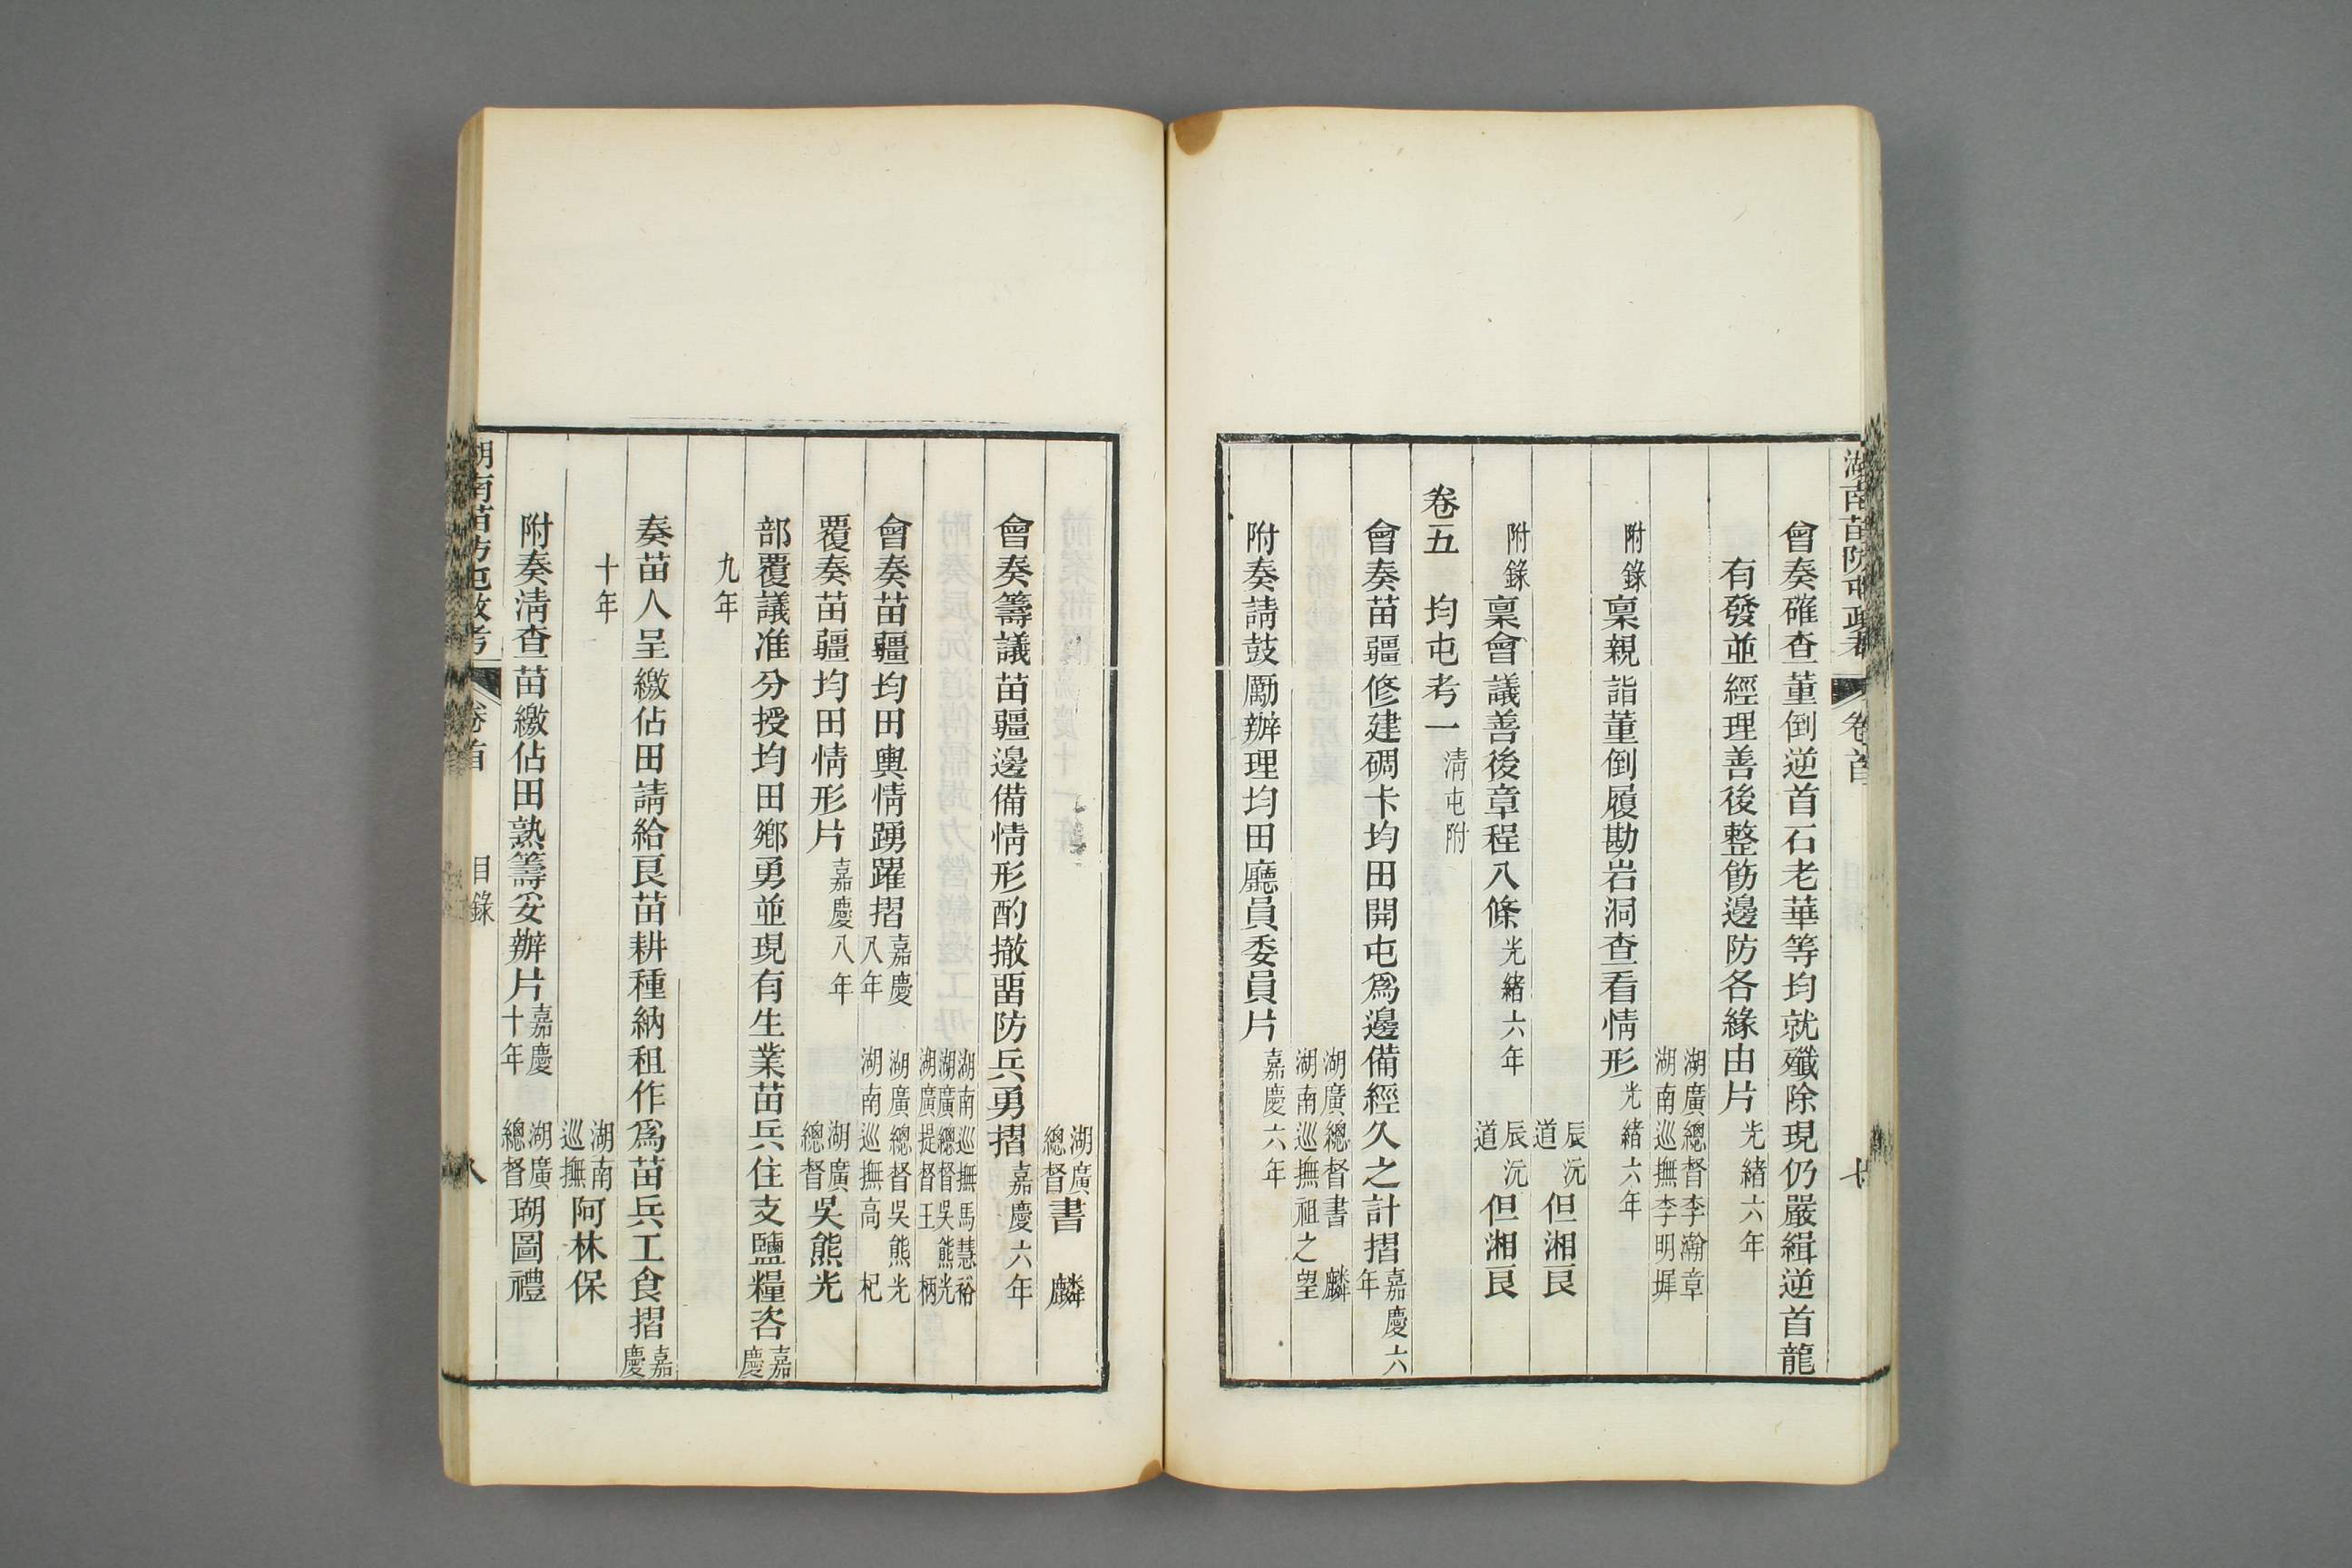 湖南苗防屯政考 卷首 七
會奏確查董倒逆首石老華等均就殲除現仍嚴緝逆首龍
有發並經理善後整飭邊防各緣由片光緒六年
湖廣總督李瀚章
湖南巡撫李明墀
附錄稟親詣董倒履勘岩洞查看情形光緒六年
辰沅道但湘良
附錄稟會議善後章程八條光緒六年
辰沅道但湘良
卷五 均屯考一 清屯附
會奏苗疆修建碉卡均田開屯為邊備經久之計摺嘉慶六年
湖廣總督書麟
湖南巡撫祖之望
附奏請鼓勵辦理均田廳員委員片嘉慶六年
湖廣總督書麟
會奏籌議苗疆邊備情形酌撤畱防兵勇摺嘉慶六年
湖南巡撫馬慧裕
湖廣總督吳熊光
湖廣提督王柄
會奏苗疆均田輿情踴躍摺嘉慶八年
湖廣總督吳熊光
湖南巡撫高杞
覆奏苗疆均田情形片嘉慶八年
湖廣總督吳熊光
部覆議准分授均田鄉勇並現有生業苗兵住支鹽糧咨嘉慶
九年
奏苗人呈繳佔田請給良苗耕種納租作為苗兵工食摺嘉慶
十年
湖南巡撫阿林保
附奏清查苗繳佔田熟籌妥辦片嘉慶十年
湖廣總督瑚圖禮
湖南苗防屯政考 卷首 目錄 八